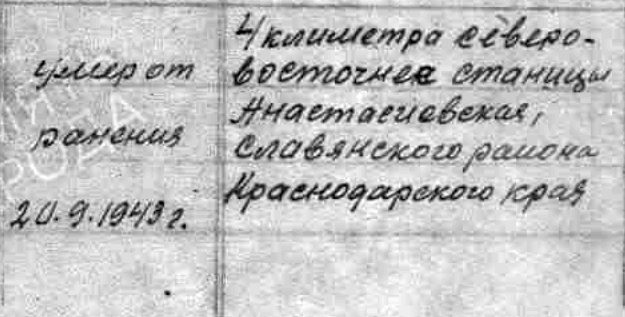 умер от
ранения
20.9.1943 г.
4 климетра северо-
восточнее станицы
Анастасиевская,
Славянского района
Краснодарского края